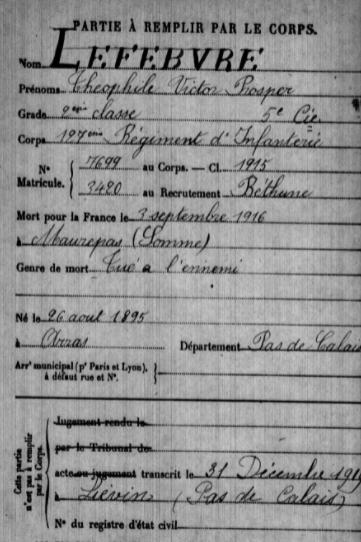 PARTIE À REMPLIR PAR LE CORPS.
Nom LEFEBVRE
Prénoms Théophile Victor Prosper
Grade 2ème classe 5e Cie
Corps 127ème Régiment d'Infanterie
N° Matricule. { 7699 au Corps. — Cl. 1915
3420 au Recrutement Béthune
Mort pour la France le 3 septembre 1916
à Maurepas (Somme)
Genre de mort Tué à l'ennemi
Né le 26 aout 1895
à Arras Département Pas de Calais
Arrt municipal (pr Paris et Lyon), à défaut rue et N°. }
Cette partie n'est pas à remplir par le Corps.
Jugement rendu le
par le Tribunal de
acte ou jugement transcrit le 31 Décembre
à Liévin (Pas de Calais)
N° du registre d'état civil